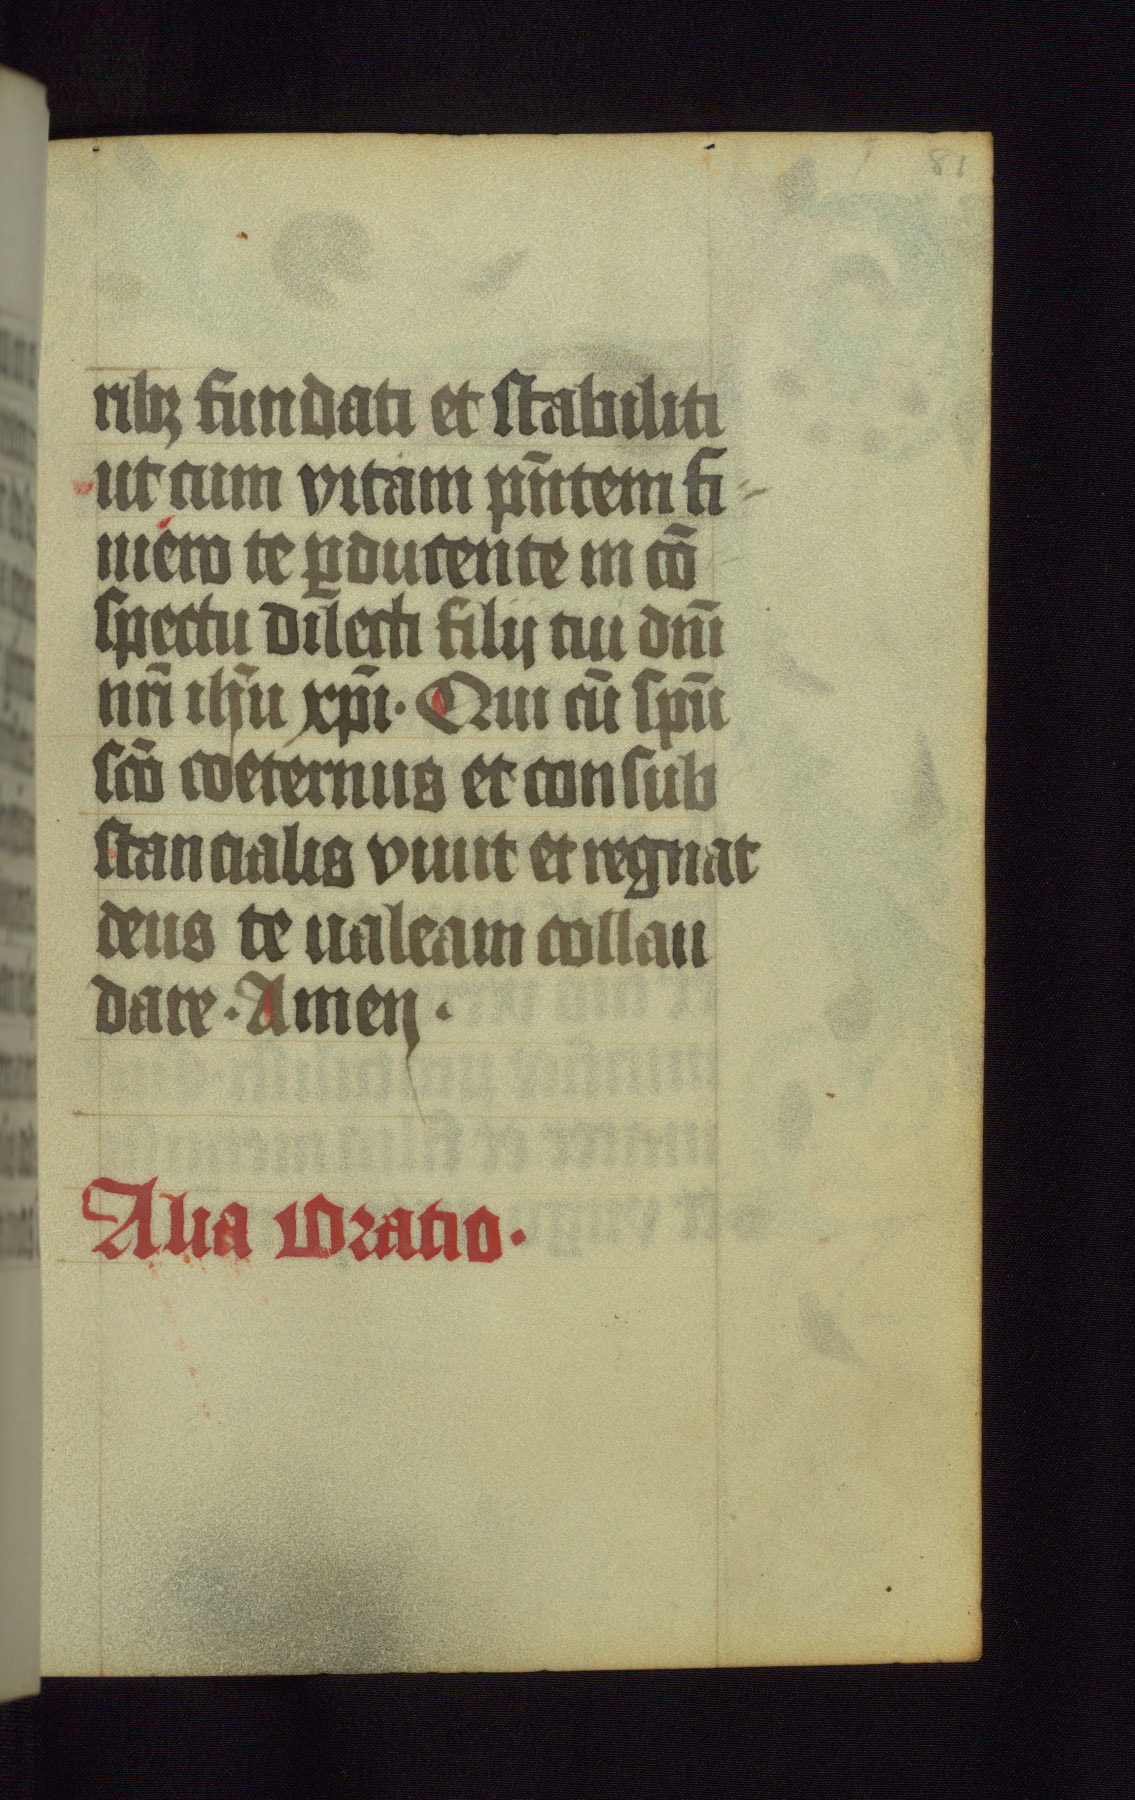 81
ribꝫ fundati et stabiliti
ut cum vitam pn̄tem fi
niero te ꝑducente in cō
spectu dilecti filij tui dn̄i
nr̄i ih̄u xp̄i. Qui cū sp̄u
scō coeternus et consub
stancialis viuit et regnat
deus te ualeam collau
dare. Amen.
Alia Oratio.